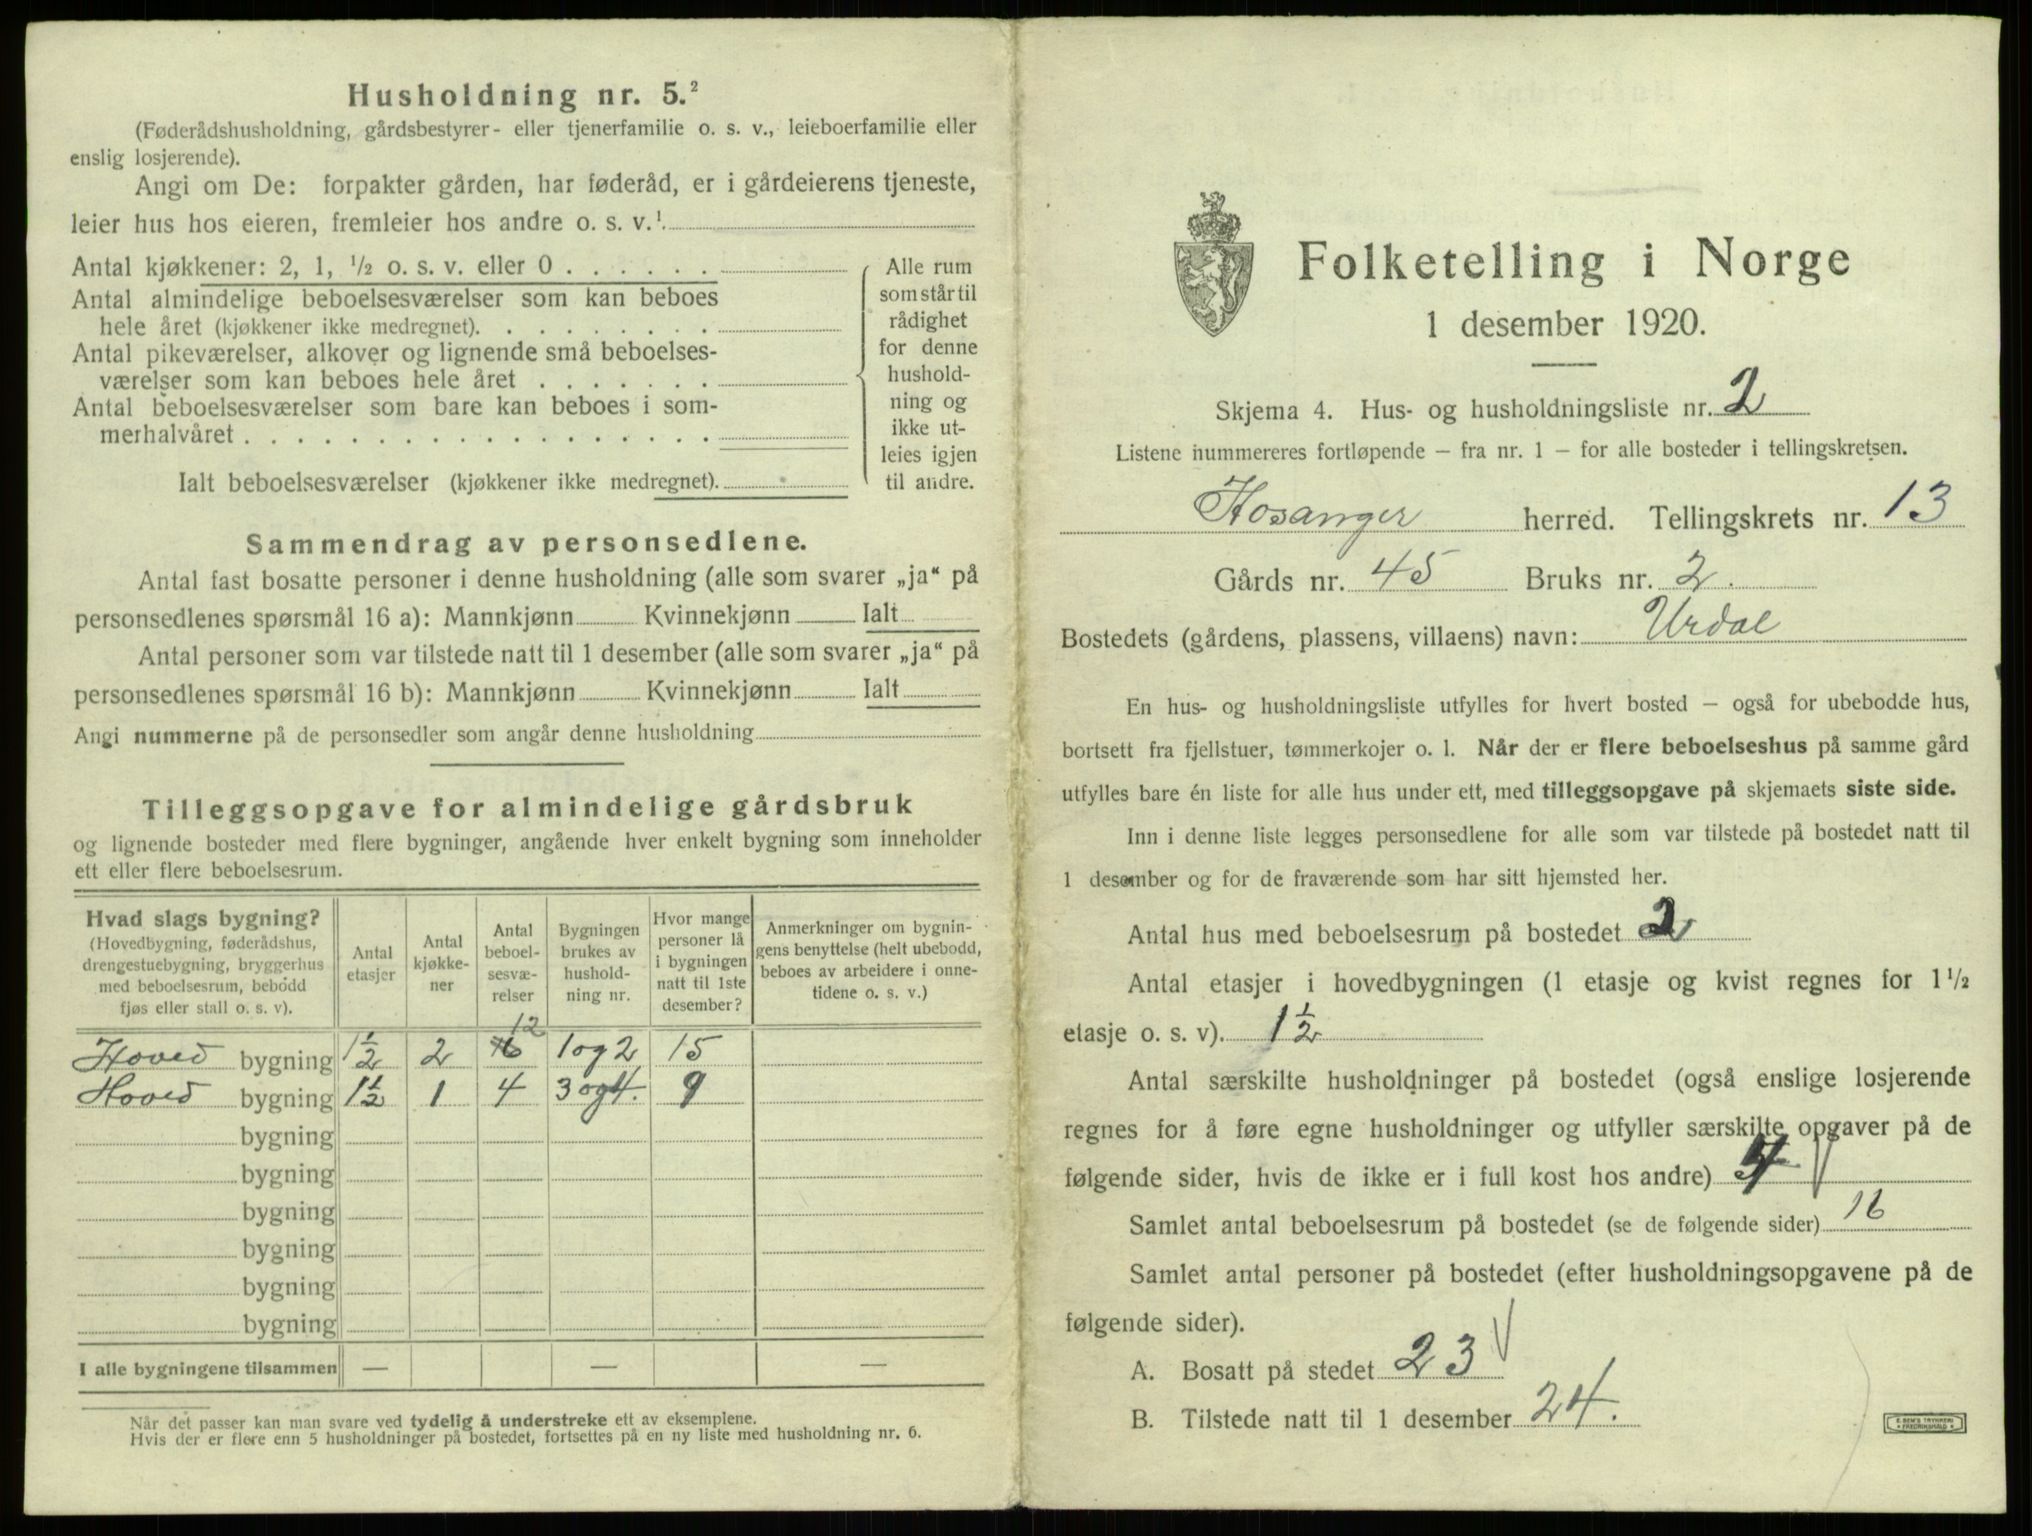 Husholdning nr. 5.²
(Føderådshusholdning, gårdsbestyrer- eller tjenerfamilie o. s. v., leieboerfamilie eller
enslig losjerende).
Angi om De: forpakter gården, har føderåd, er i gårdeierens tjeneste,
leier hus hos eieren, fremleier hos andre o. s. v.¹
Antal kjøkkener: 2, 1, ½ o. s. v. eller 0 . . . . . .
Antal almindelige beboelsesværelser som kan beboes
hele året (kjøkkener ikke medregnet). . . . . . . . .
Antal pikeværelser, alkover og lignende små beboelses-
værelser som kan beboes hele året . . . . . . .
Antal beboelsesværelser som bare kan beboes i som-
merhalvåret . . . . . . . . . . . . . . . . . .
Ialt beboelsesværelser (kjøkkener ikke medregnet).
Alle rum
som står til
rådighet
for denne
hushold-
ning og
ikke ut-
leies igjen
til andre.
Sammendrag av personsedlene.
Antal fast bosatte personer i denne husholdning (alle som svarer „ja“ på
personsedlenes spørsmål 16 a): Mannkjønn Kvinnekjønn Ialt
Antal personer som var tilstede natt til 1 desember (alle som svarer „ja“ på
personsedlenes spørsmål 16 b): Mannkjønn Kvinnekjønn Ialt
Angi nummerne på de personsedler som angår denne husholdning
Tilleggsopgave for almindelige gårdsbruk
og lignende bosteder med flere bygninger, angående hver enkelt bygning som inneholder
ett eller flere beboelsesrum.
Hvad slags bygning?
(Hovedbygning, føderådshus,
drengestuebygning, bryggerhus
med beboelsesrum, bebodd
fjøs eller stall o. s. v).
Antal
etasjer
Antal
kjøkke-
ner
Antal
beboel-
sesvæ-
relser
Bygningen
brukes av
hushold-
ning nr.
Hvor mange
personer lå
i bygningen
natt til 1ste
desember?
Anmerkninger om bygnin-
gens benyttelse (helt ubebodd,
beboes av arbeidere i onne-
tidene o. s. v.)
12
Hoved bygning 1½ 2 1 og 2 15
Hoved bygning 1½ 1 4 3 og 4. 9
bygning
bygning
bygning
bygning
bygning
bygning
I alle bygningene tilsammen — — —
Når det passer kan man svare ved tydelig å understreke ett av eksemplene.
Hvis der er flere enn 5 husholdninger på bostedet, fortsettes på en ny liste med husholdning nr. 6.
Folketelling i Norge
1 desember 1920.
Skjema 4. Hus- og husholdningsliste nr. 2
Listene nummereres fortløpende — fra nr. 1 — for alle bosteder i tellingskretsen.
Hosanger herred. Tellingskrets nr. 13
Gårds nr. 45 Bruks nr. 2.
Bostedets (gårdens, plassens, villaens) navn: Urdal
En hus- og husholdningsliste utfylles for hvert bosted — også for ubebodde hus,
bortsett fra fjellstuer, tømmerkojer o. l. Når der er flere beboelseshus på samme gård
utfylles bare én liste for alle hus under ett, med tilleggsopgave på skjemaets siste side.
Inn i denne liste legges personsedlene for alle som var tilstede på bostedet natt til
1 desember og for de fraværende som har sitt hjemsted her.
Antal hus med beboelsesrum på bostedet 2
Antal etasjer i hovedbygningen (1 etasje og kvist regnes for 1½
etasje o. s. v). 1½
Antal særskilte husholdninger på bostedet (også enslige losjerende
regnes for å føre egne husholdninger og utfyller særskilte opgaver på de
følgende sider, hvis de ikke er i full kost hos andre) 4
Samlet antal beboelsesrum på bostedet (se de følgende sider) 16
Samlet antal personer på bostedet (efter husholdningsopgavene på de
følgende sider).
A. Bosatt på stedet 23
B. Tilstede natt til 1 desember 24.
E. SEM'S TRYKKERI
FREDRIKSHALD